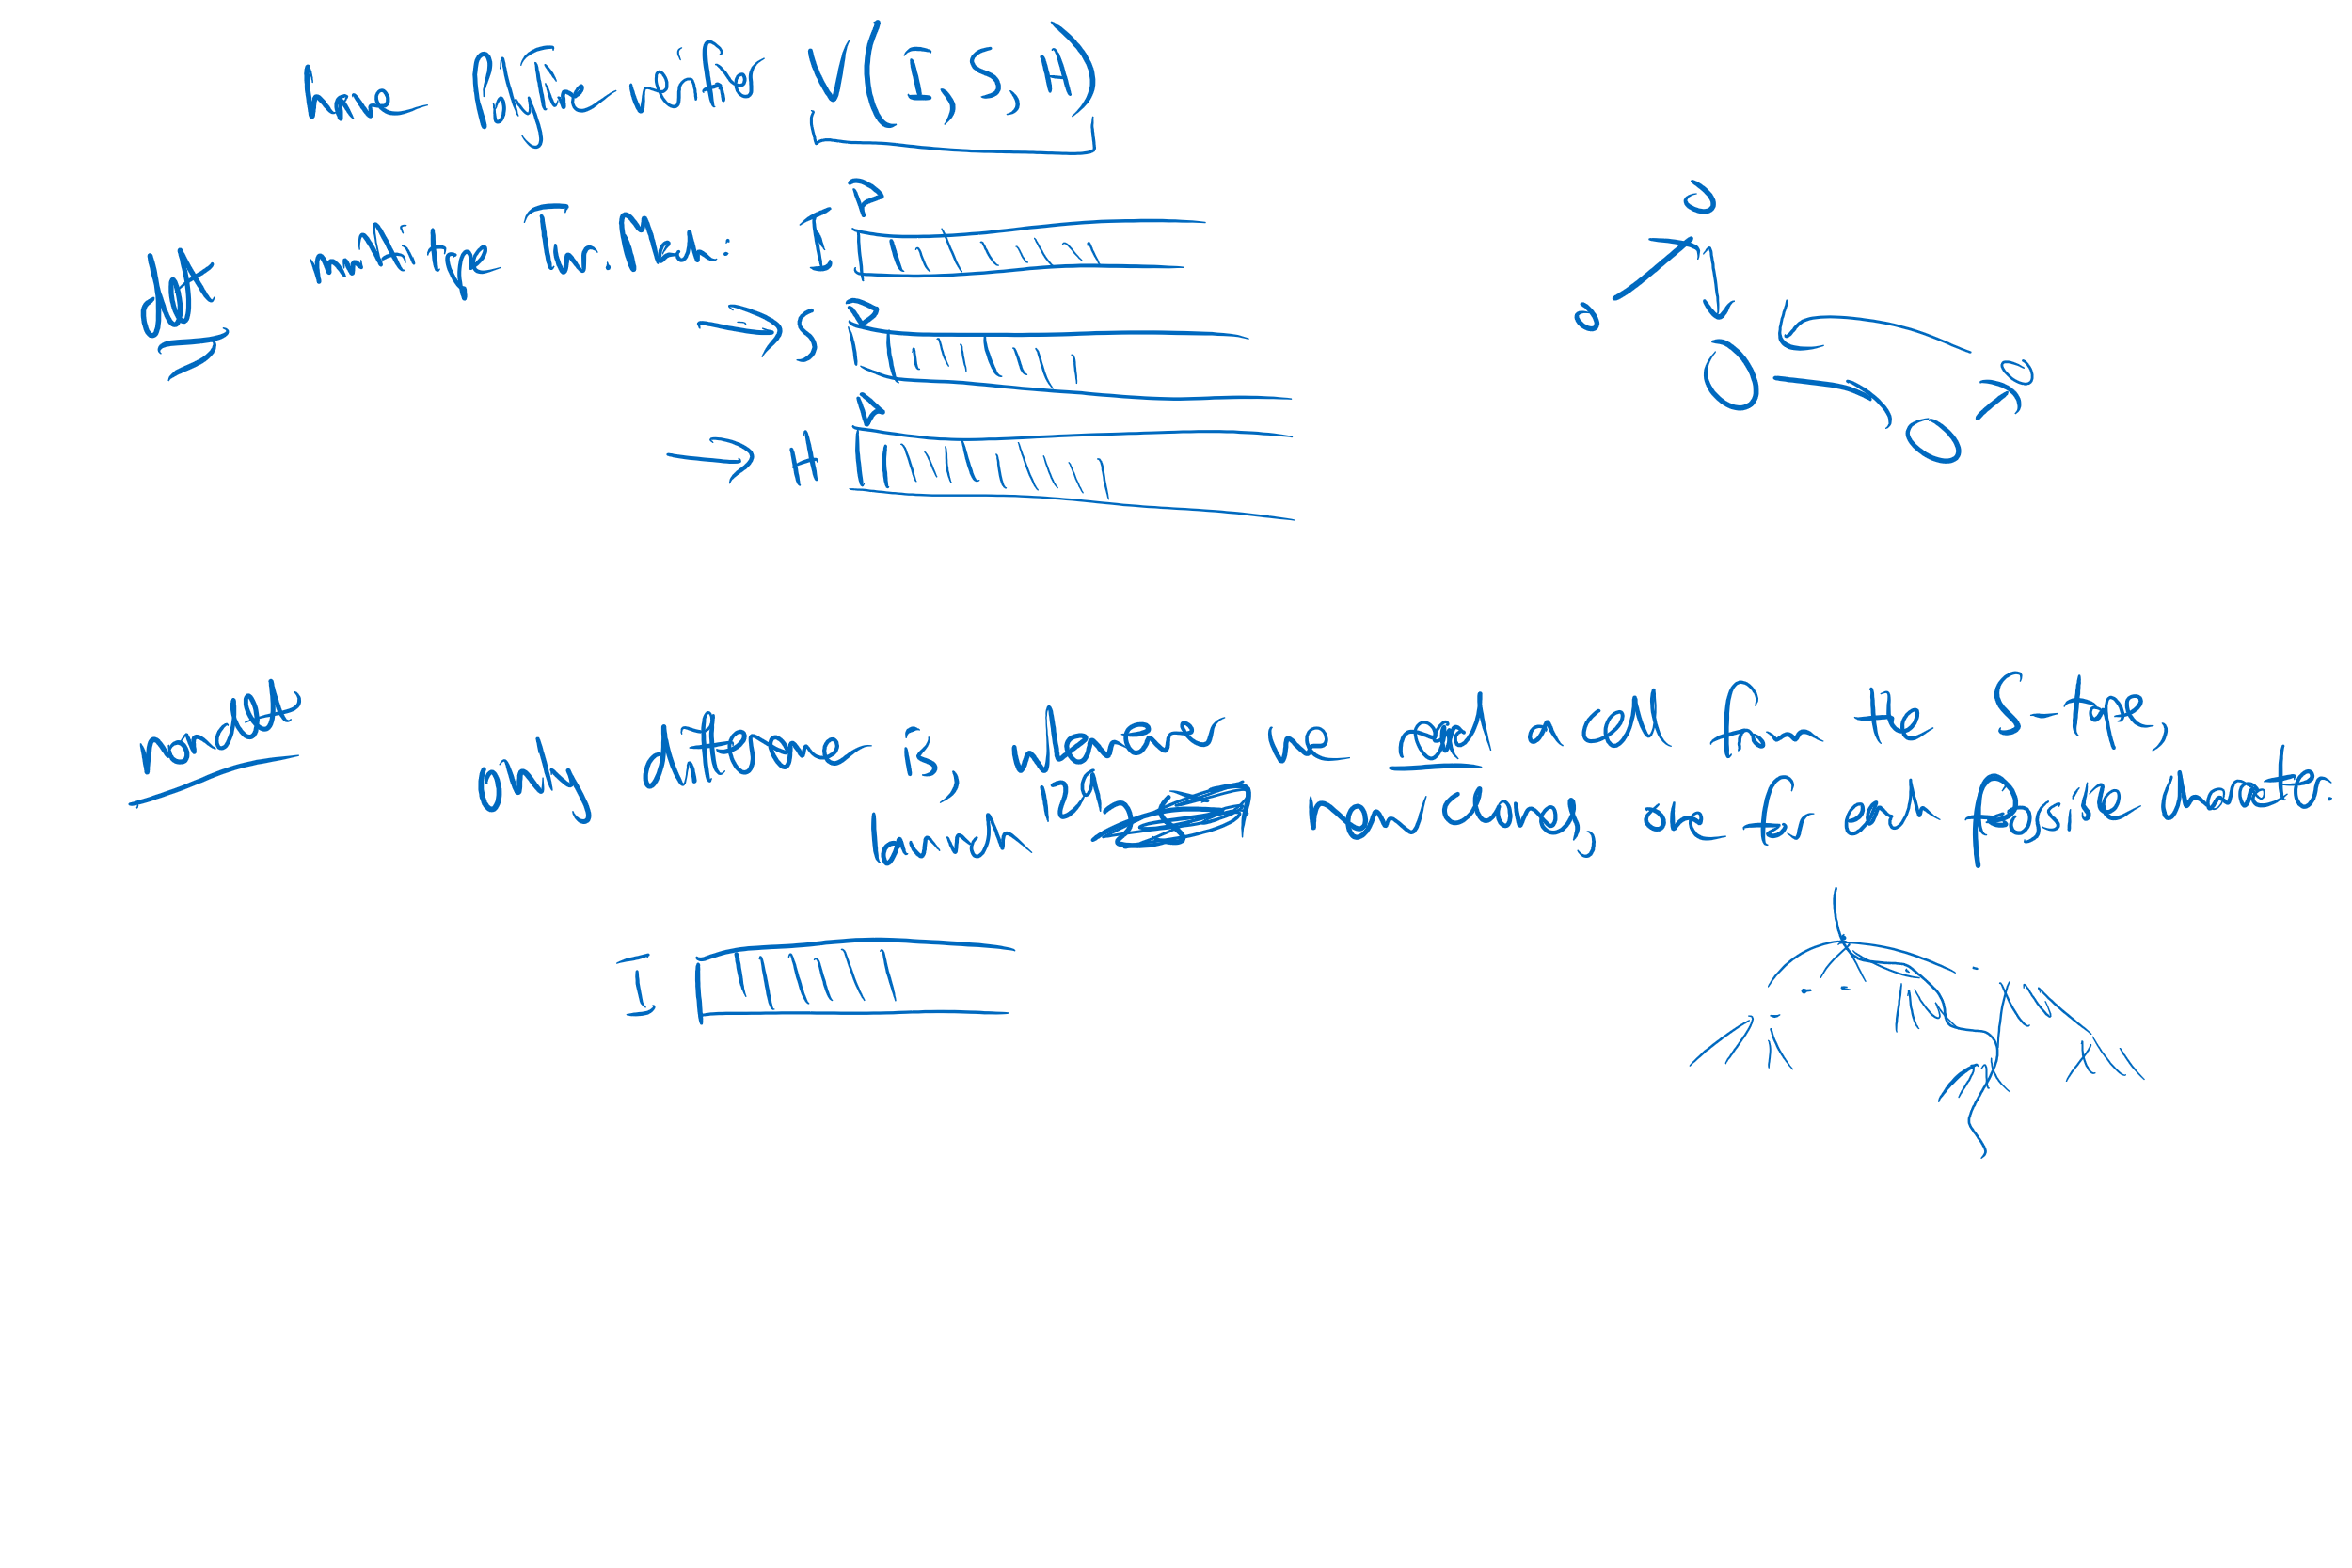 have polytime verifier V(I, S, H)
det
multitape T.M.: I
S
H
nondet
only difference is, whenever we read a cell from the S-tape,
launch | Γ | many clones, one for each possible what.
I